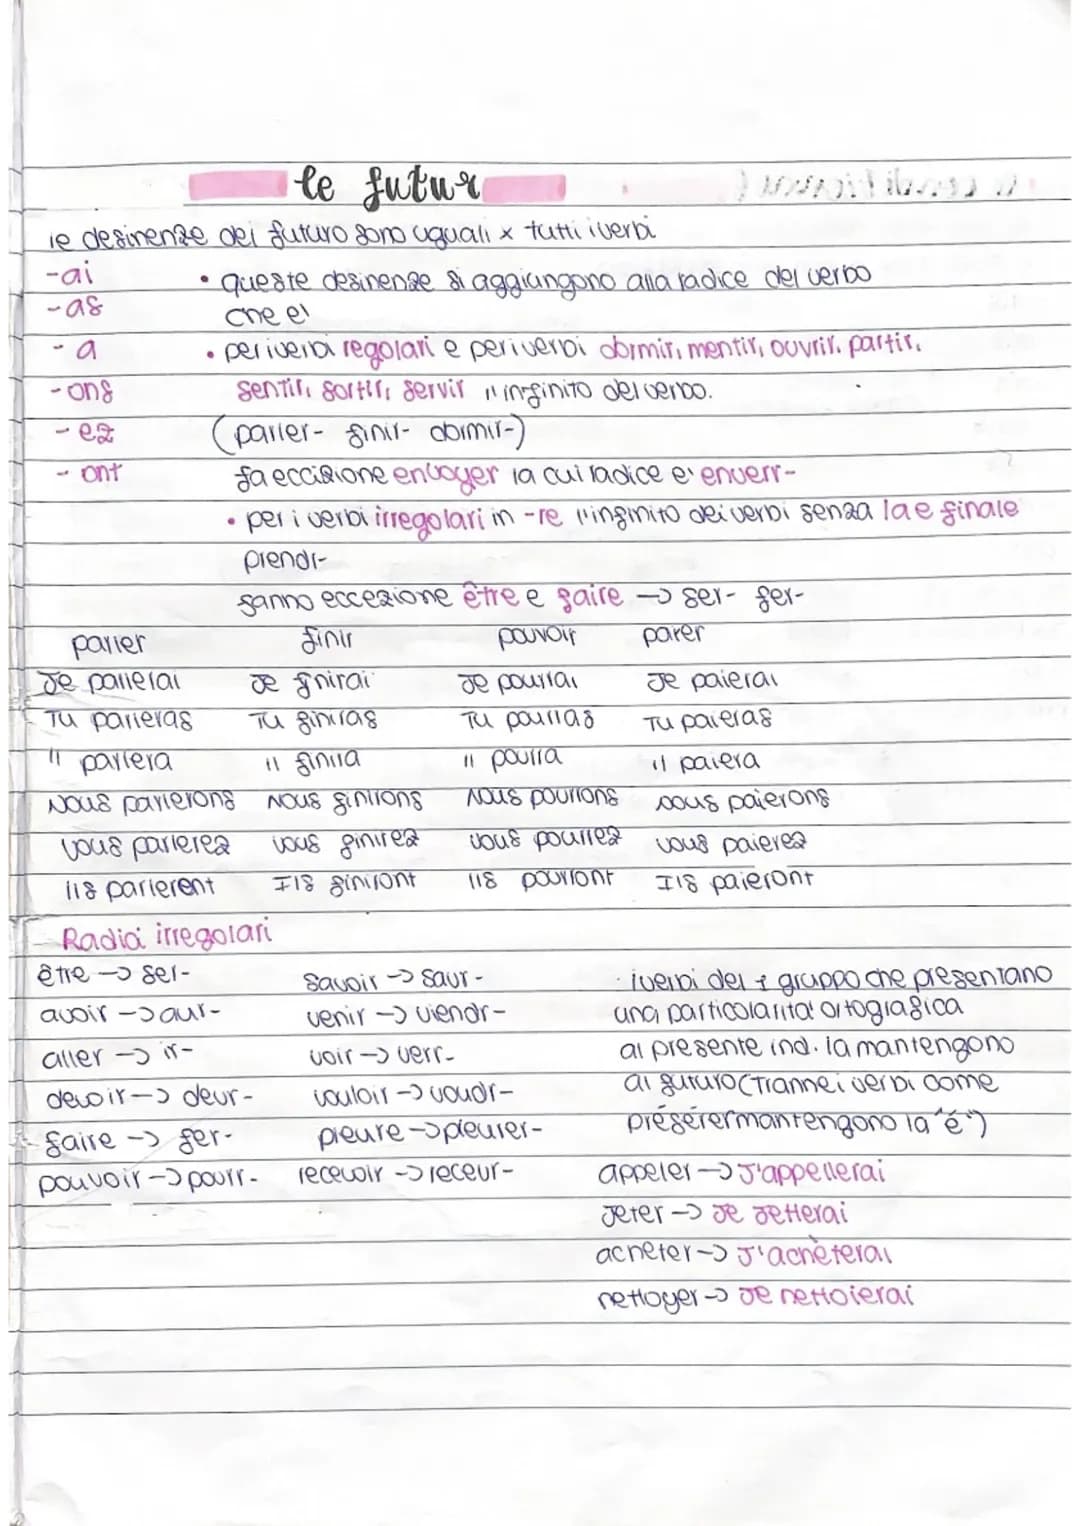 le futur
le desinenze del futuro sono uguali x tutti i verbi
-ai • queste desinenze si aggiungono alla radice del verbo
-as che e'
-a • per i verbi regolari e per i verbi dormir, mentir, ouvrir, partir,
-ons sentir, sortir, servir l'infinito del verbo.
-ez (parler- finir- dormir-)
-ont fa eccisione envoyer la cui radice e' enverr-
• per i verbi irregolari in -re l'infinito dei verbi senza la e finale
prendr-
fanno eccezione être e faire -> ser- fer-
parler finir pouvoir payer
Je parlerai Je finirai Je pourrai Je paierai
Tu parleras Tu finiras Tu pourras Tu paieras
Il parlera Il finira Il pourra Il paiera
Nous parlerons Nous finirons Nous pourrons nous paierons
Vous parlerez vous finirez vous pourrez vous paierez
Ils parlerent Ils finiront Ils pourront Ils paieront
Radici irregolari
être -> ser- savoir -> saur- • i verbi del 1 gruppo che presentano
avoir -> aur- venir -> viendr- una particolarita' ortografica
aller -> ir- voir -> verr- al presente ind. la mantengono
devoir -> devr- vouloir -> voudr- al futuro (Tranne i verbi come
faire -> fer- pleure -> pleuver- préférer mantengono la "é")
pouvoir -> pourr- recevoir -> recevr- appeler -> J'appellerai
Jeter -> Je Jetterai
acheter -> J'achèterai
nettoyer -> Je nettoierai